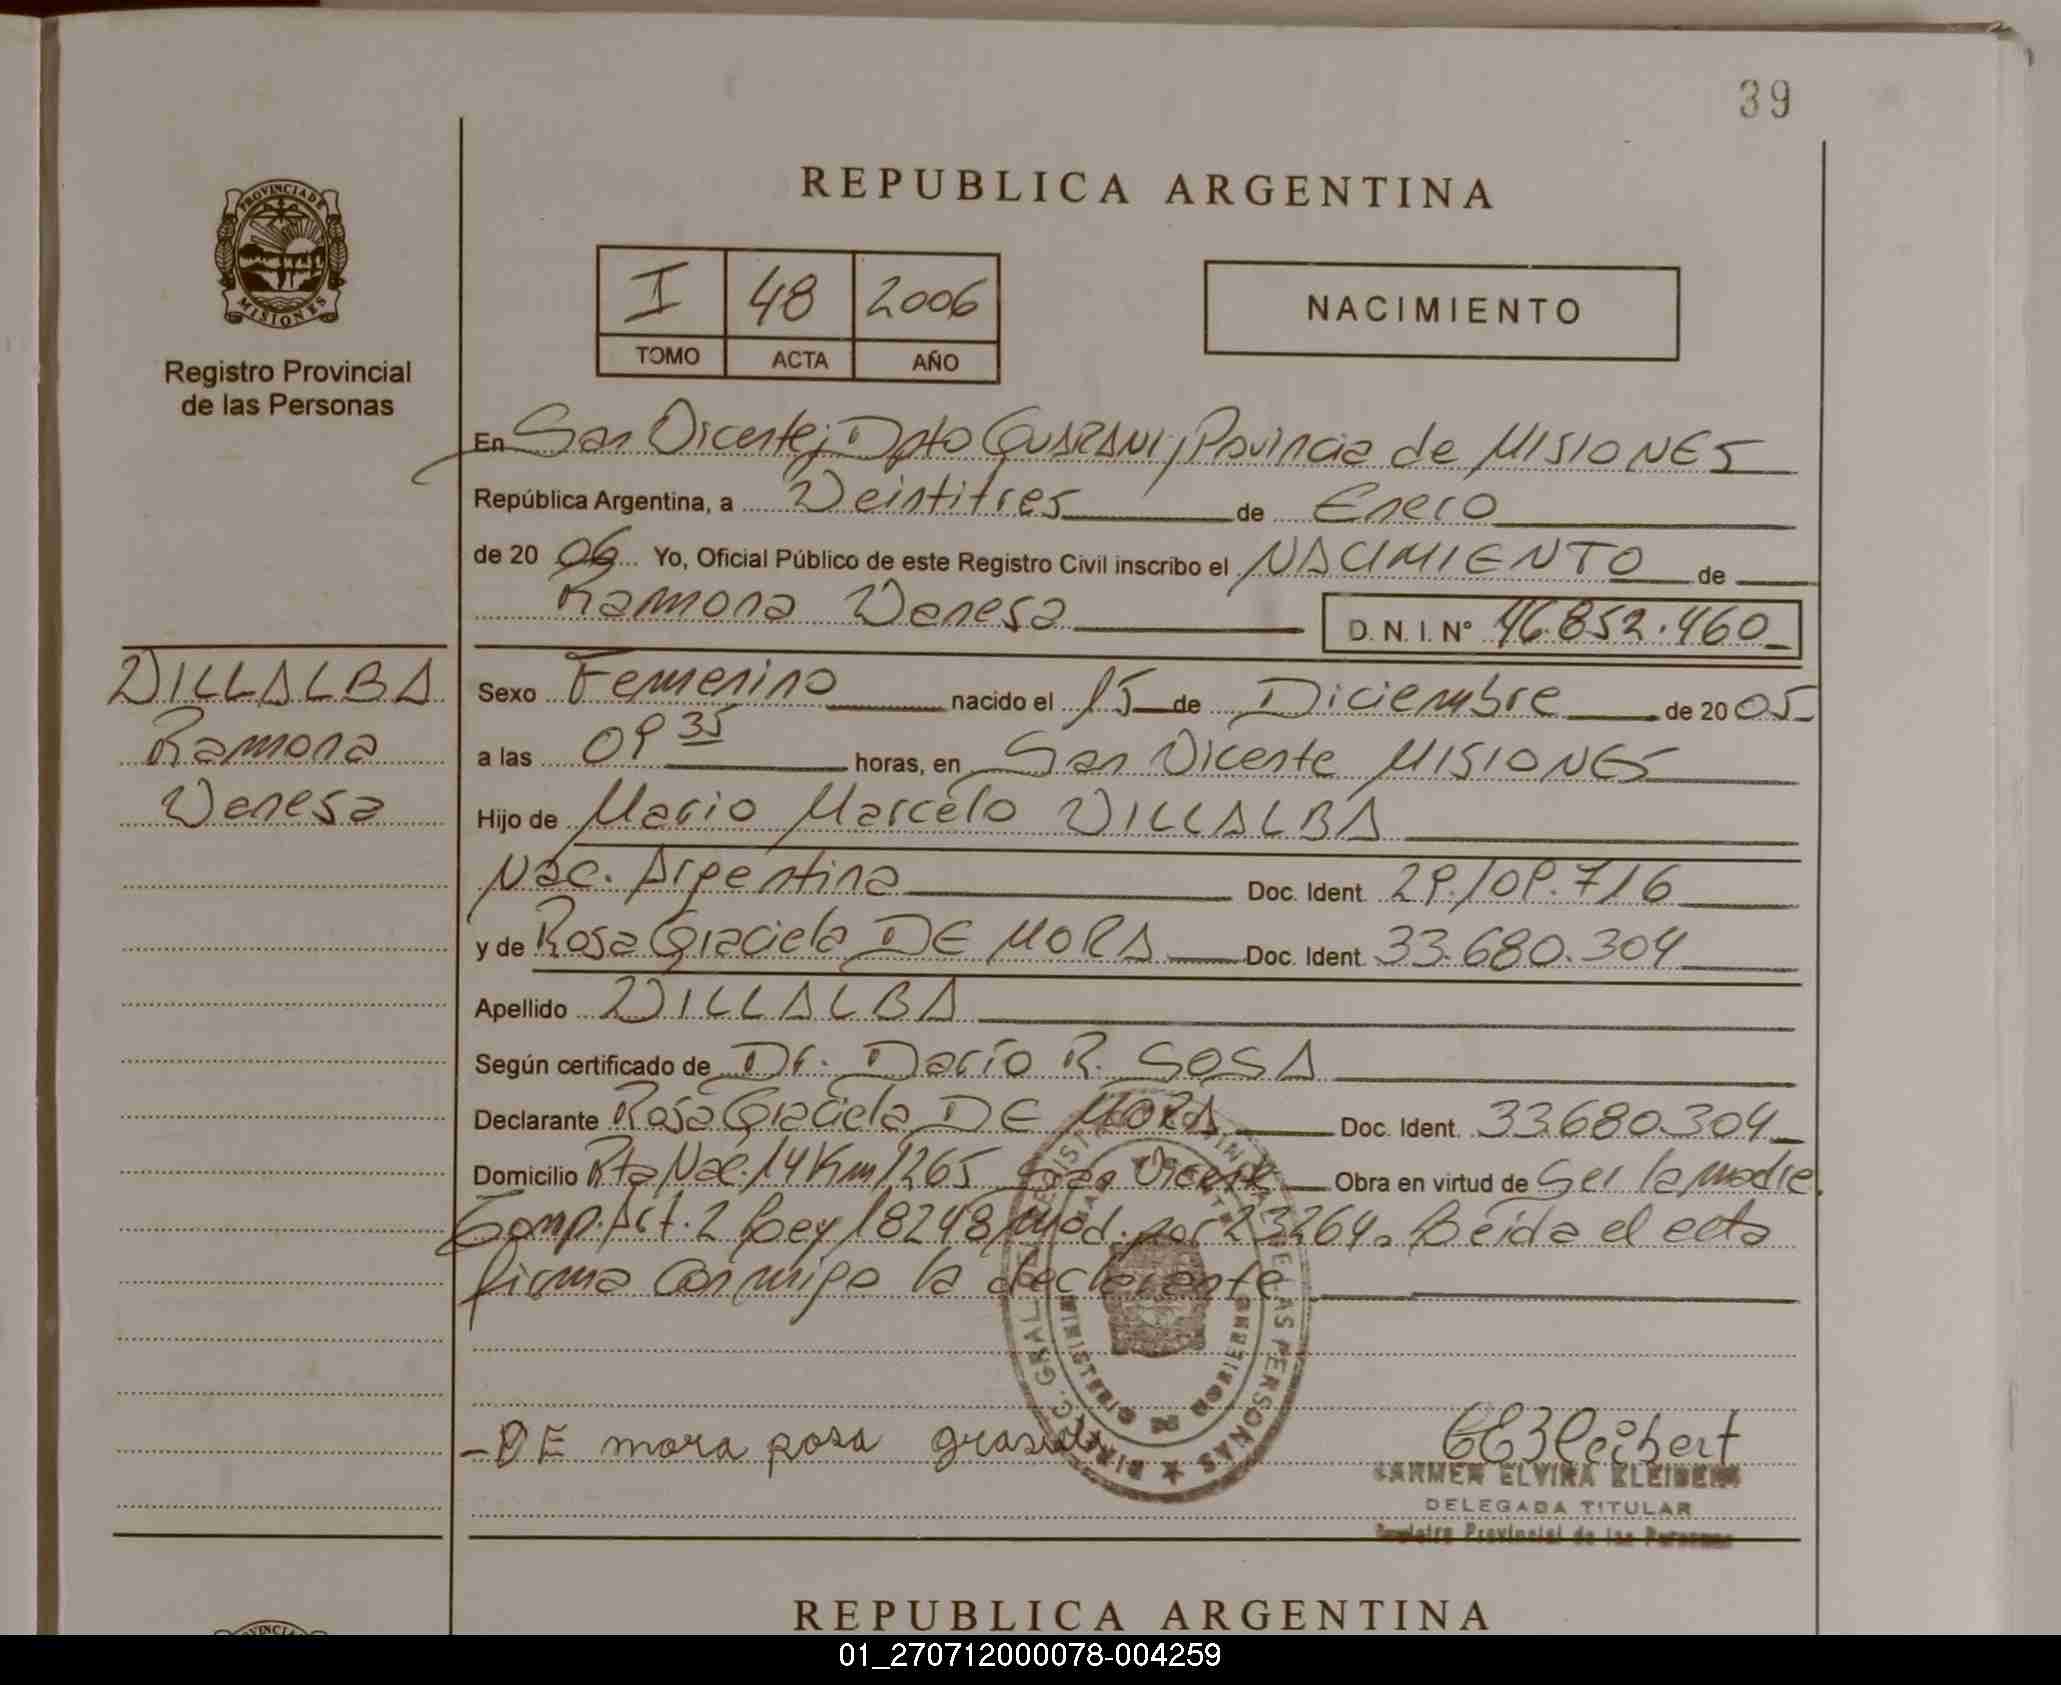 39
PROVINCIA DE MISIONES
Registro Provincial
de las Personas
REPUBLICA ARGENTINA
I 48 2006
TOMO ACTA AÑO
NACIMIENTO
En San Vicente, Dpto GUARANI, Provincia de MISIONES
República Argentina, a Veintitres de Enero
de 20 06 Yo, Oficial Público de este Registro Civil inscribo el NACIMIENTO de
Ramona Vanesa D. N. I. Nº 46.852.460
VILLALBA
Ramona
Vanesa
Sexo Femenino nacido el 15 de Diciembre de 20 05
a las 09 35 horas, en San Vicente MISIONES
Hijo de Mario Marcelo VILLALBA
Nac. Argentina Doc. Ident. 29.109.716
y de Rosa Graciela DE MORA Doc. Ident. 33.680.304
Apellido VILLALBA
Según certificado de Dr. Darío R. SOSA
Declarante Rosa Graciela DE MORA Doc. Ident. 33.680.304
Domicilio Rta Nac. 14 Km 1265 San Vicente Obra en virtud de Ser la madre
Comp. Art. 2 Ley 18248 mod. por 23264. Leída el acta
firma conmigo la declarante
DIREC. GRAL. REGISTRO PROVINCIAL DE LAS PERSONAS
SAN VICENTE
MINISTERIO DE GOBIERNO
- DE mora rosa
CARMEN ELVIRA KLEIBERT
DELEGADA TITULAR
Registro Provincial de las Personas
REPUBLICA ARGENTINA
01_270712000078-004259